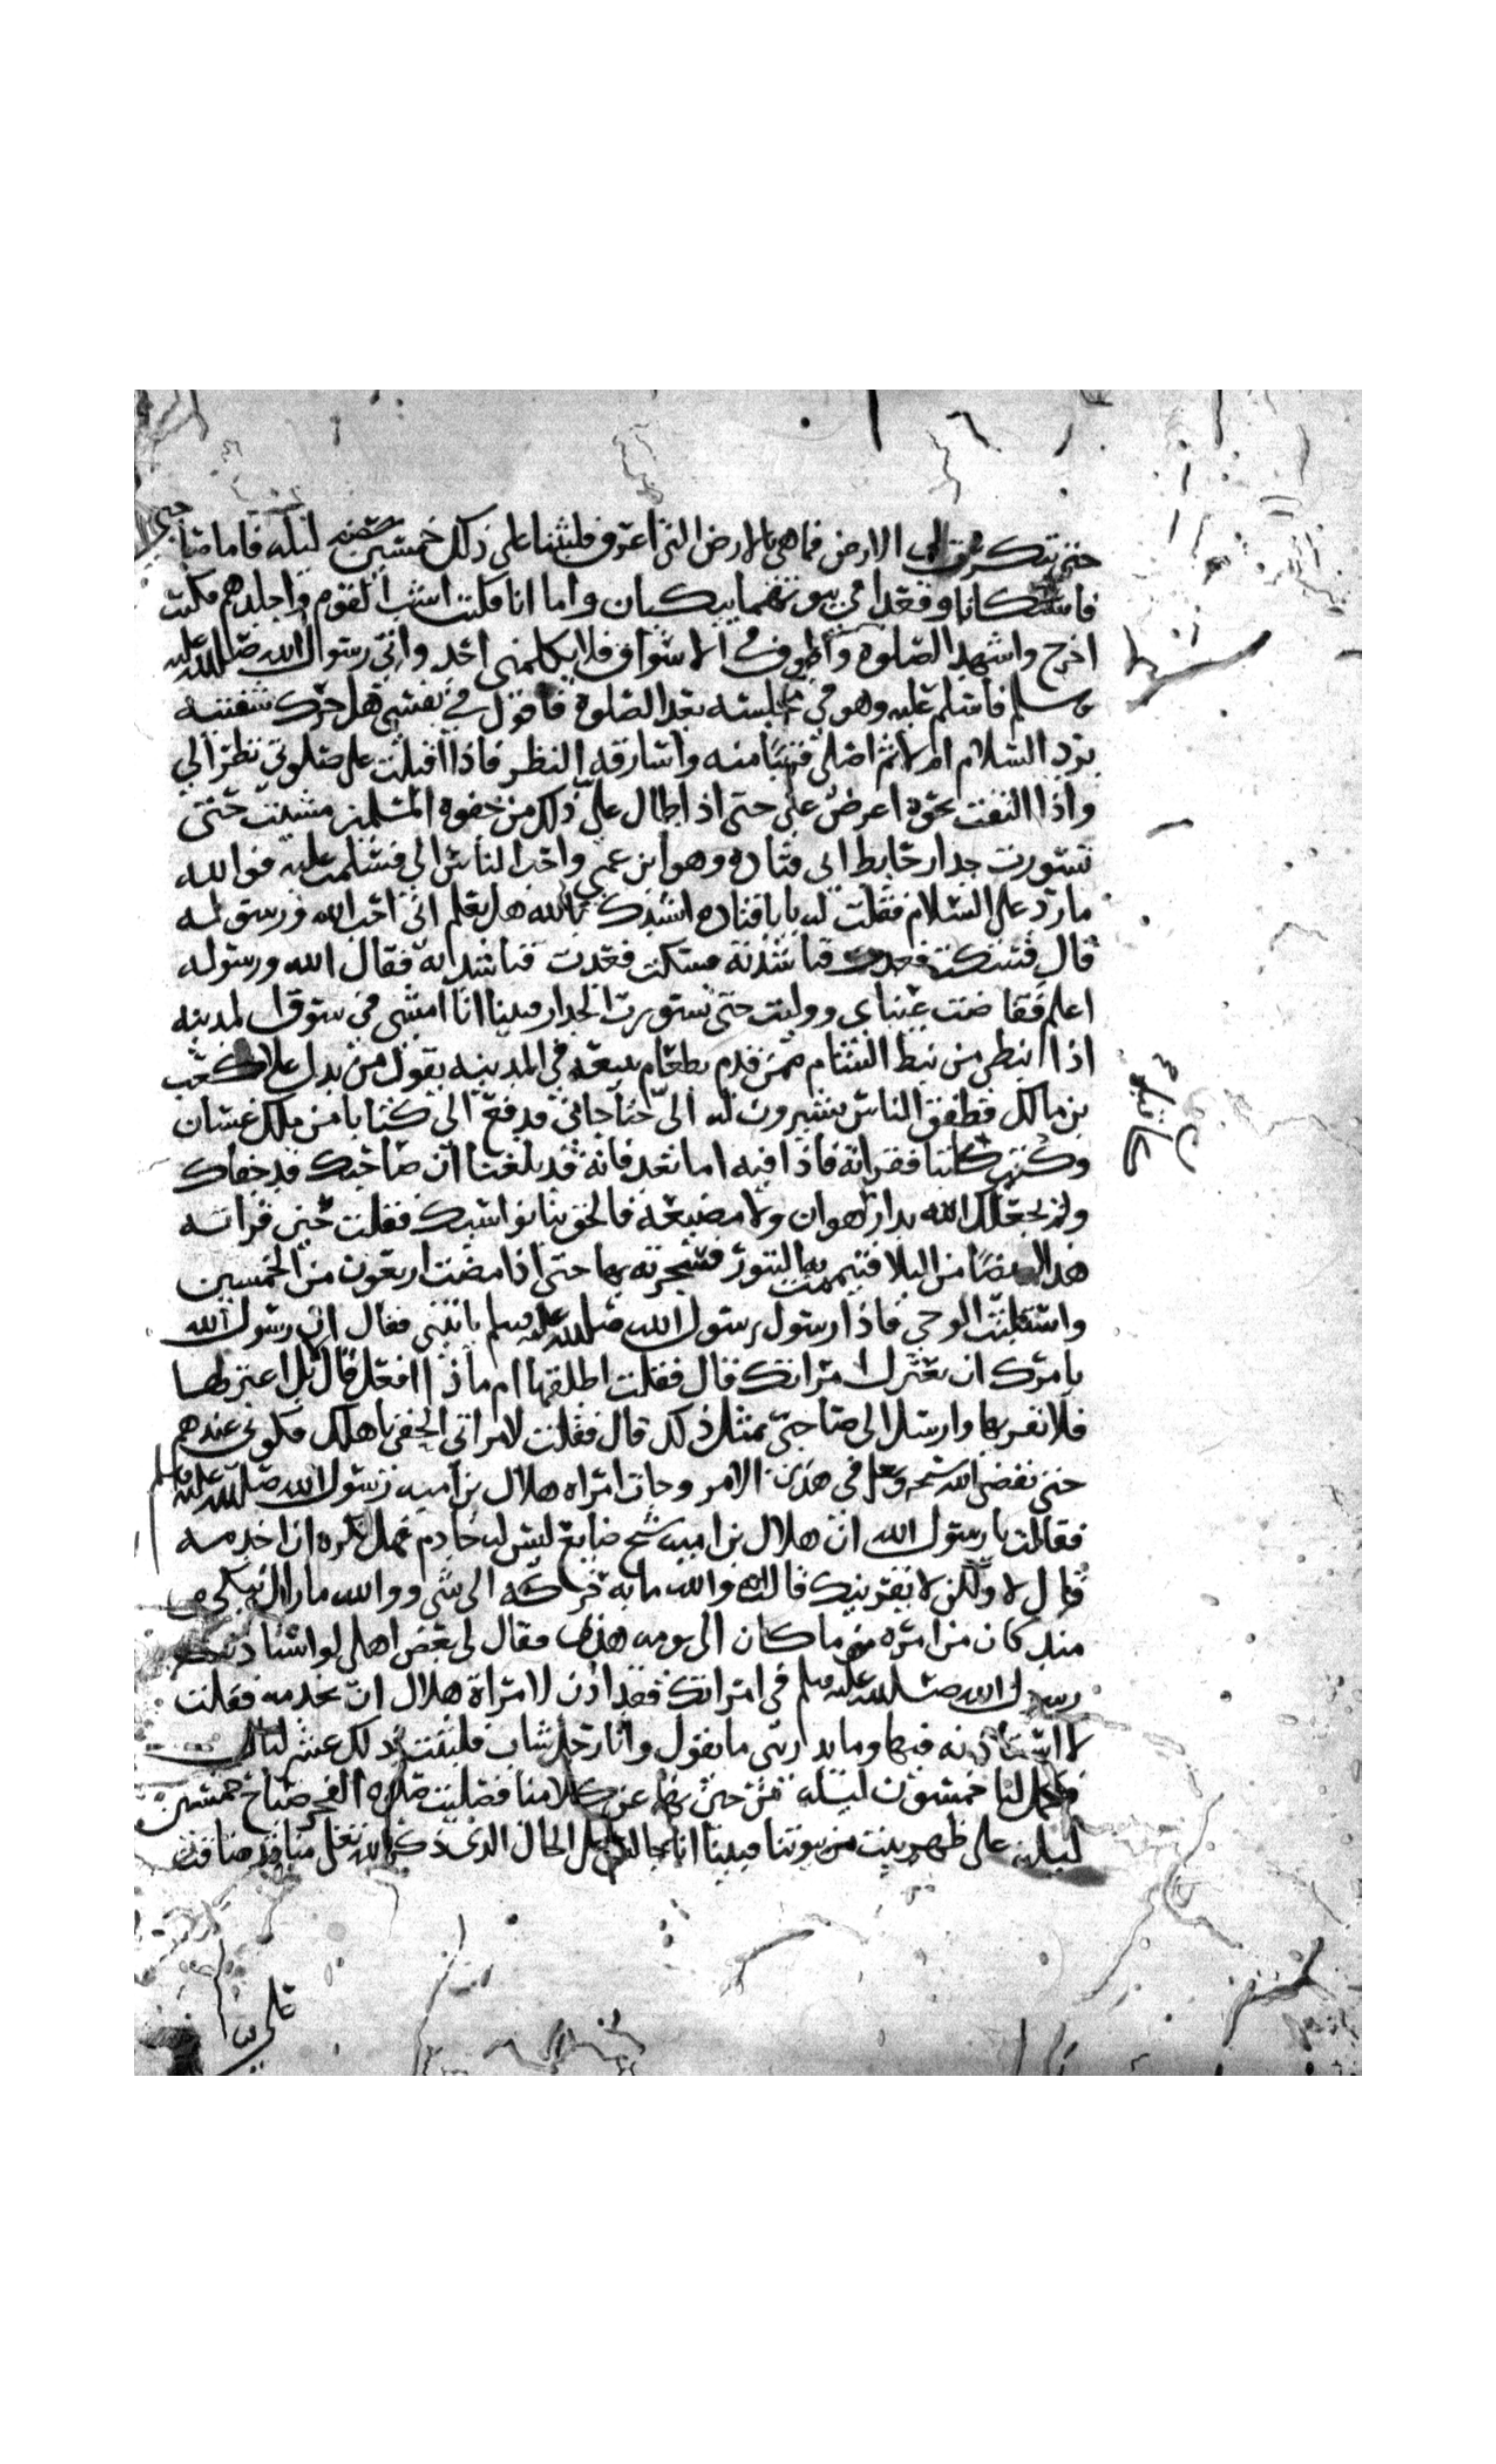 حتى تنكرت لي الارض فما هي بالارض التي اعرف فلبثنا على ذلك خمسين ليله فاما صاحبي
فاستكانا وقعدا في بيوتهما يبكيان واما انا فكنت اشب القوم واجلدهم فكنت
اخرج واشهد الصلوة واطوف في الاسواق فلا يكلمني احد واتي رسول الله صلى الله عليه
وسلم فاسلم عليه وهو في مجلسه بعد الصلوة فاقول في نفسي هل حرك شفتيه
برد السلام ام لا ثم اصلي قريبا منه واسارقه النظر فاذا اقبلت على صلوتي نظر الي
واذا التفت نحوه اعرض عني حتى اذا طال علي ذلك من جفوه المسلمين مشيت حتى
تسورت جدار حايط ابي قتاده وهو ابن عمي واحب الناس الي فسلمت عليه فوالله
ما رد علي السلام فقلت له يابا قتاده انشدك بالله هل تعلم اني احب الله ورسوله
قال فسكت فعدت فناشدته فسكت فعدت فناشدته فقال الله ورسوله
اعلم ففاضت عيناي ووليت حتى تسورت الجدار فبينا انا امشي في سوق المدينه
اذا نبطي من نبط الشام ممن قدم بطعام يبيعه في المدينه يقول من يدل على كعب
بن مالك فطفق الناس يشيرون له الي حتا جاني فدفع الي كتابا من ملك غسان
وكنت كاتبا فقراته فاذا فيه اما بعد فانه قد بلغنا ان صاحبك قد جفاك
ولم يجعلك الله بدار هوان ولا مضيعه فالحق بنا نواسيك فقلت حين قراته
هذا ايضا من البلا فتيممت بها التنور فسجرته بها حتى اذا مضت اربعون من الخمسين
واستلبث الوحي فاذا رسول رسول الله صلى الله عليه وسلم ياتيني فقال ان رسول الله
يامرك ان تعتزل امراتك قال فقلت اطلقها ام ماذا افعل قال بل اعتزلها
فلا تقربها وارسل الى صاحبي بمثل ذلك قال فقلت لامراتي الحقي باهلك فكوني عندهم
حتى يقضي الله في هذا الامر وجات امراه هلال بن اميه رسول الله صلى الله عليه وسلم
فقالت يا رسول الله ان هلال بن اميه شيخ ضايع ليس له خادم فهل تكره ان اخدمه
قال لا ولكن لا يقربنك قالت والله ما به حركه الى شي ووالله ما زال يبكي
منذ كان من امره ما كان الى يومه هذا فقال لي بعض اهلي لو استاذنت
رسول الله صلى الله عليه وسلم في امراتك فقد اذن لامراة هلال ان تخدمه فقلت
لا استاذنه فيها وما يدريني ما يقول وانا رجل شاب فلبثت بذلك عشر ليال
فكمل لنا خمسون ليله من حين نهى عن كلامنا فصليت صلوه الفجر صباح خمسين
ليله على ظهر بيت من بيوتنا فبينا انا جالس على الحال الذي ذكر الله تعلى منا قد ضاقت